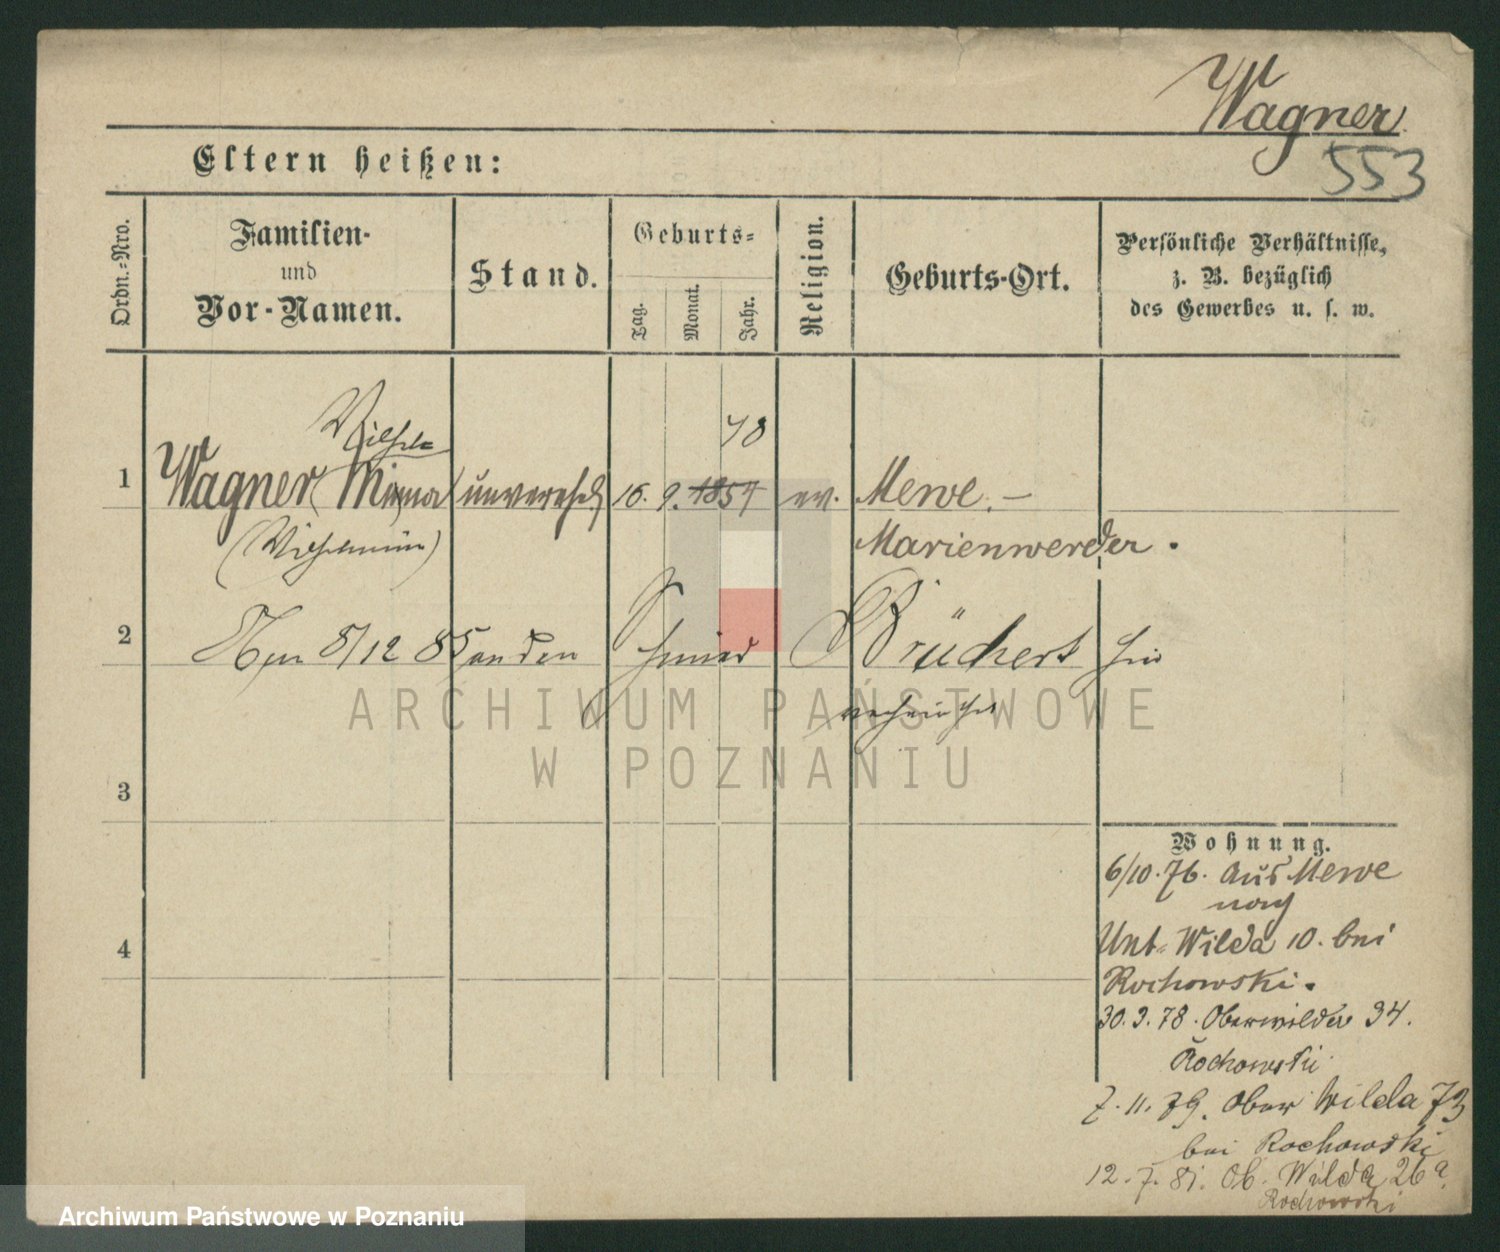 Wagner
553
Eltern heißen:
Ordn.-Nro.
Familien-
und
Vor-Namen.
Stand.
Geburts-
Tag.
Monat.
Jahr.
Religion.
Geburts-Ort.
Persönliche Verhältnisse,
z. B. bezüglich
des Gewerbes u. s. w.
48
1 Wagner Minna unverehel. 16. 9. 1854 ev. Mewe. —
(Wilhelmine) Marienwerder.
2 8/12 85 an den Schmied Brückert hier
verheirathet
3
4
ARCHIWUM PAŃSTWOWE
W POZNANIU
Wohnung.
6/10.76. aus Mewe
nach
Unt-Wilda 10. bei
Rochowski.
30.3.78. Oberwilda 34.
Rochowski
7.11.79. Ober Wilda 73
bei Rochowski
12.7.81. Ob. Wilda 26a.
Rochowski
Archiwum Państwowe w Poznaniu